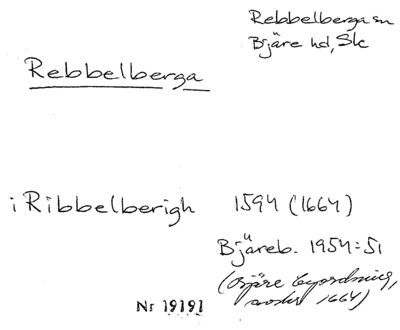 Rebbelberga sn
Bjäre hd, Sk
Rebbelberga
i Ribbelberigh 1594 (1664)
Bjäreb. 1954:51
(Bjäre byordning,
1664)
Nr 19191